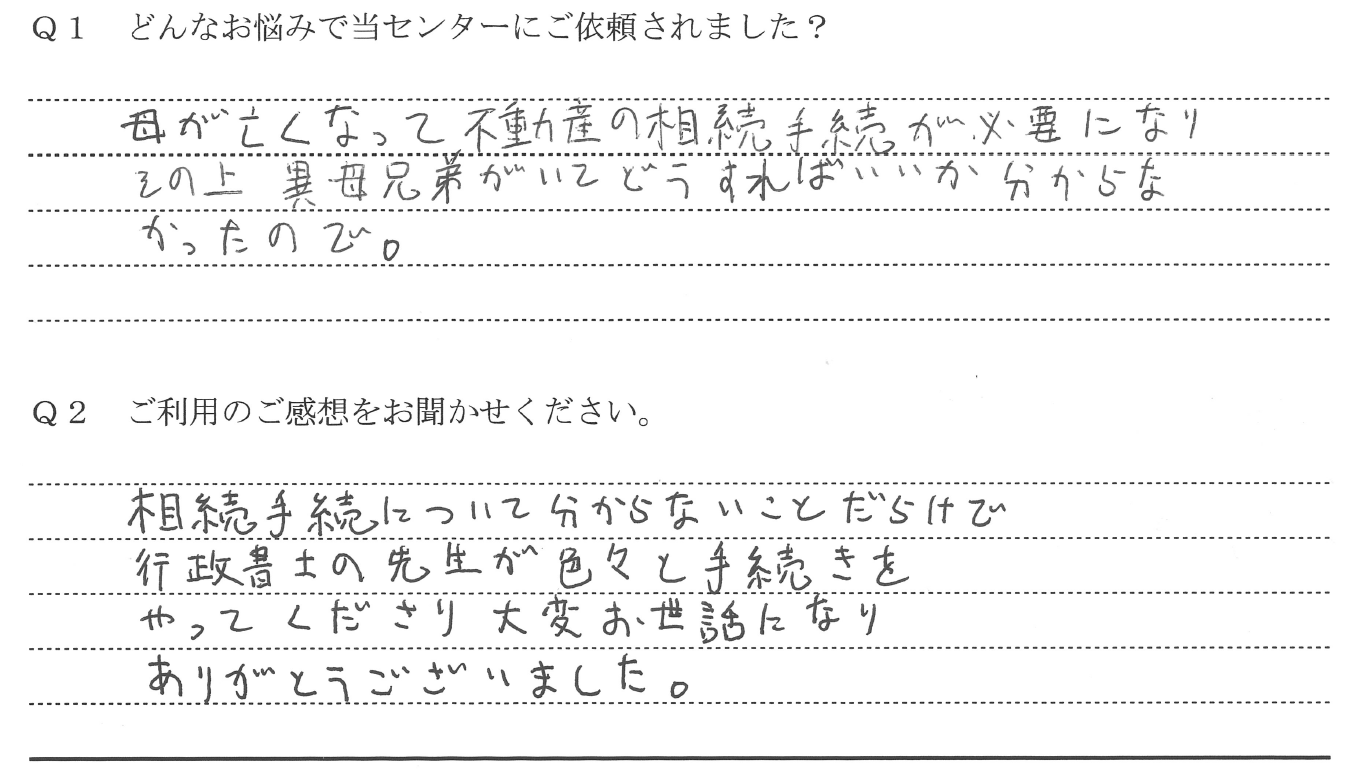 Q1 どんなお悩みで当センターにご依頼されました？
母が亡くなって不動産の相続手続が必要になり
その上 異母兄弟がいてどうすればいいか 分からな
かったので。
Q2 ご利用のご感想をお聞かせください。
相続手続について分からないことだらけで
行政書士の先生が色々と手続きを
やってくださり 大変お世話になり
ありがとうございました。